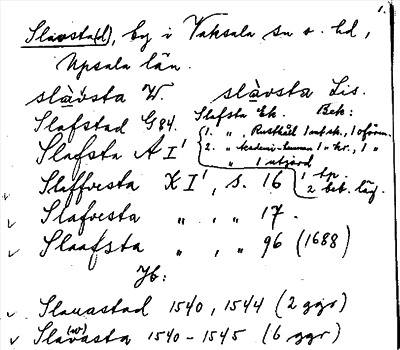 1.
Slavsta(d), by i Vaksala sn o. hd,
Upsala län.
slàvsta W. slàvsta Lis.
Slafsta Ek. Bek:
Slafstad G 84.
1. " , Rusthåll 1 mtsk., 1 oförm.
Slafsta A I'
2. " Academi-hemman 1 " kr., 1 "
" 1 utjord
Slaffvesta K I', s. 16
1 tp.
2 beb. läg.
Slafvesta " , " 17.
Slaafsta " , " 96 (1688)
Jb:
Slauastad 1540, 1544 (2 ggr)
Slavasta 1540-1545 (6 ggr)